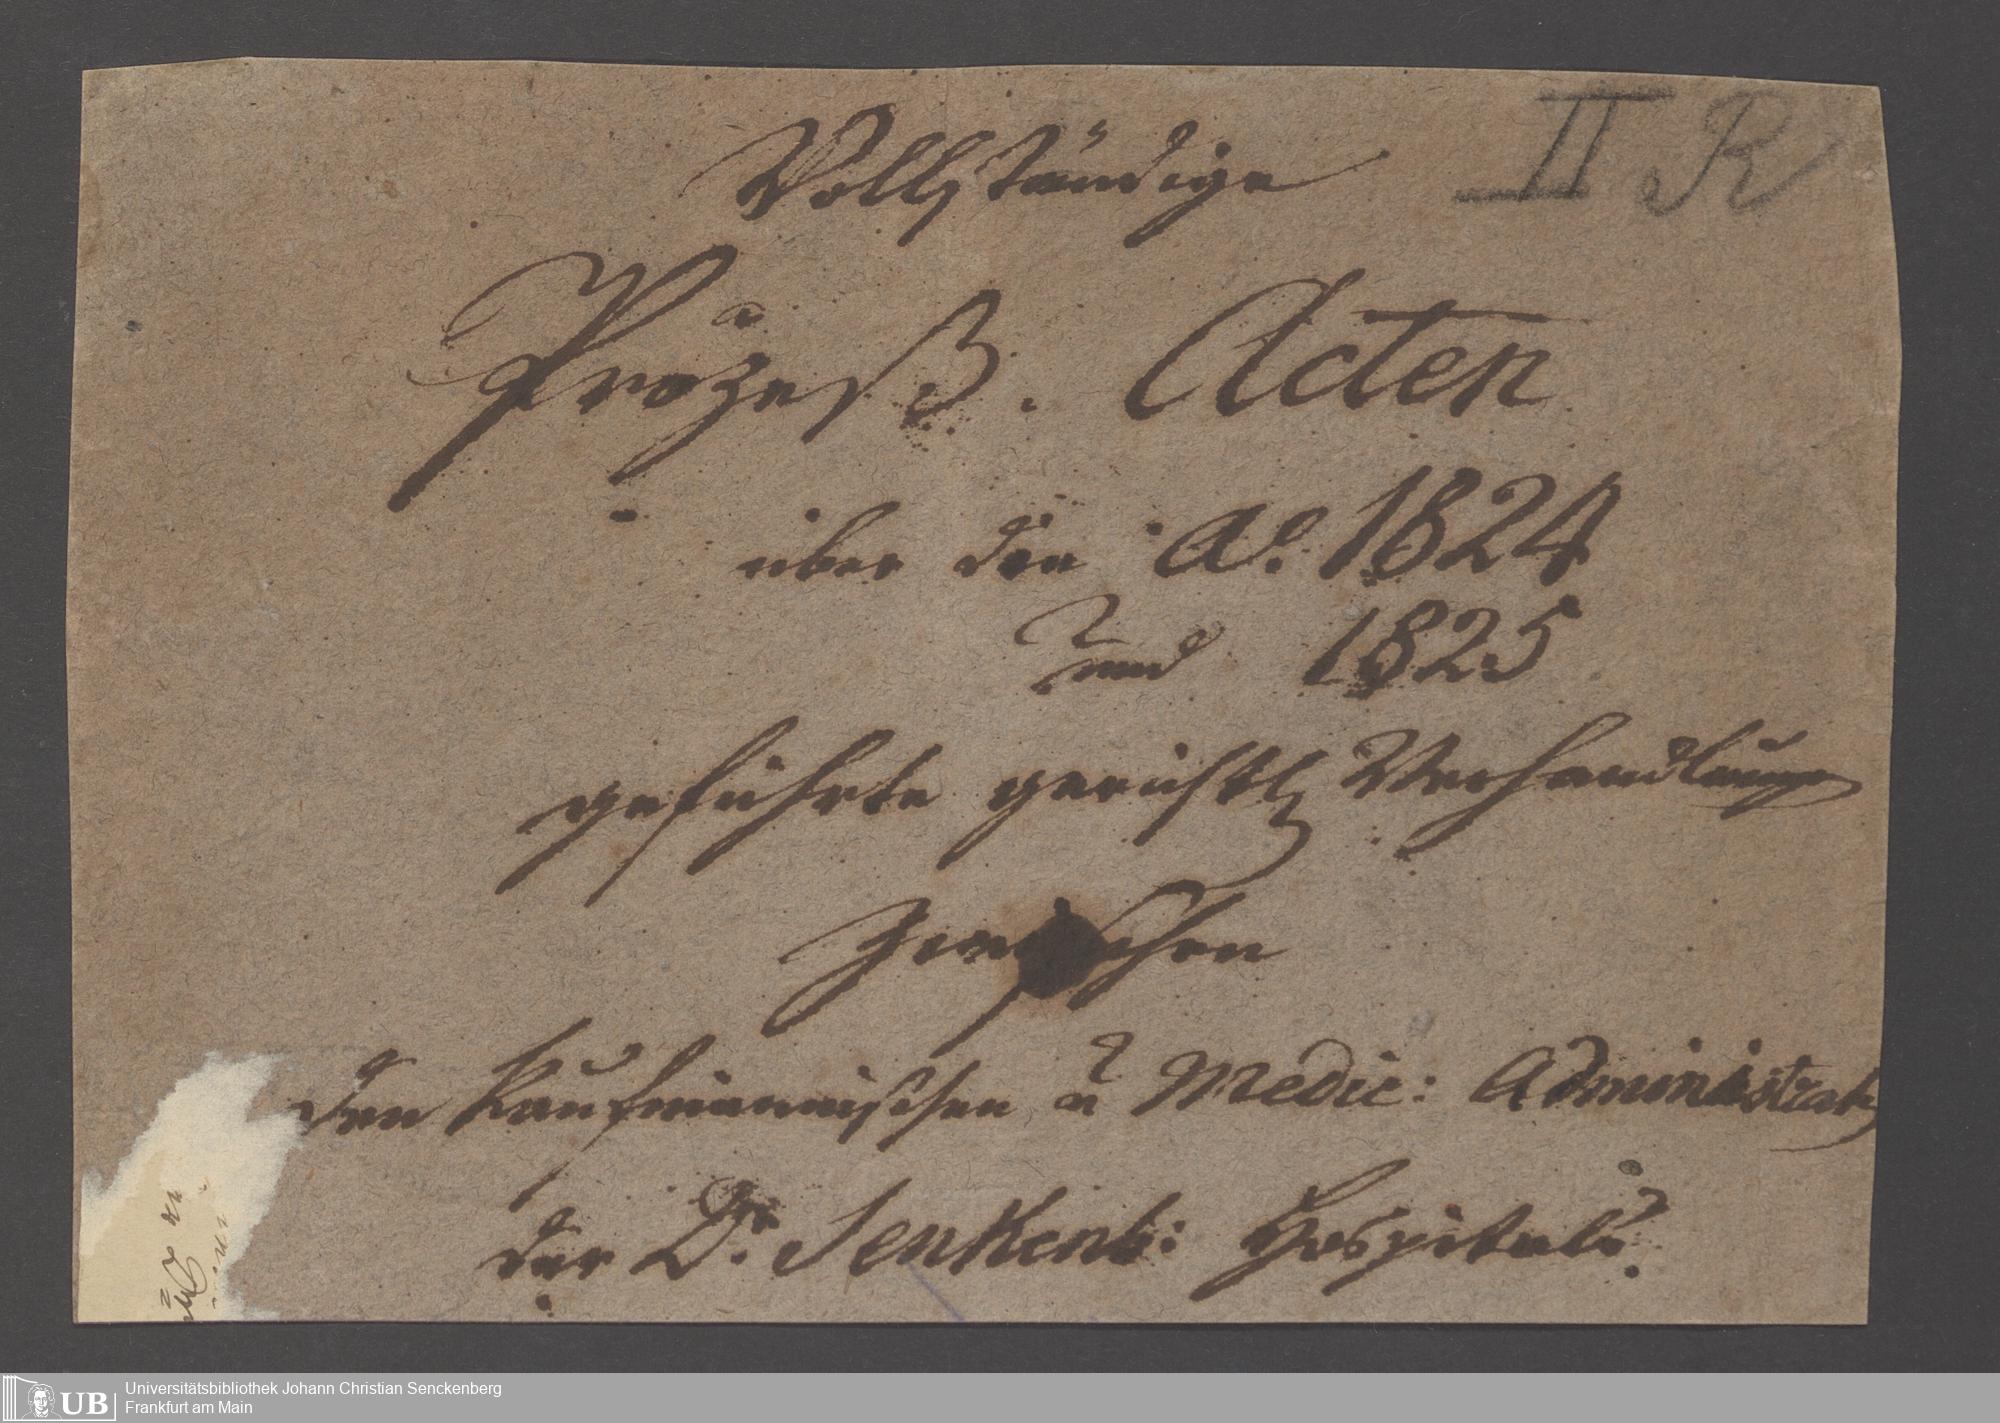 II R
Vollständige
Prozeß. Acten
über die Ao. 1824
und 1825
geführte gerichtl Verhandlung
zwischen
den kaufmännischen u Medic: Administrat
der Dr. Senkenb: Hospitals.
UB Universitätsbibliothek Johann Christian Senckenberg
Frankfurt am Main